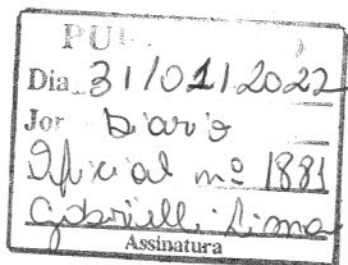 Dia 31/01/2022
Jor Diario
Oficial nº 1881
Gabrielli Lima
Assinatura